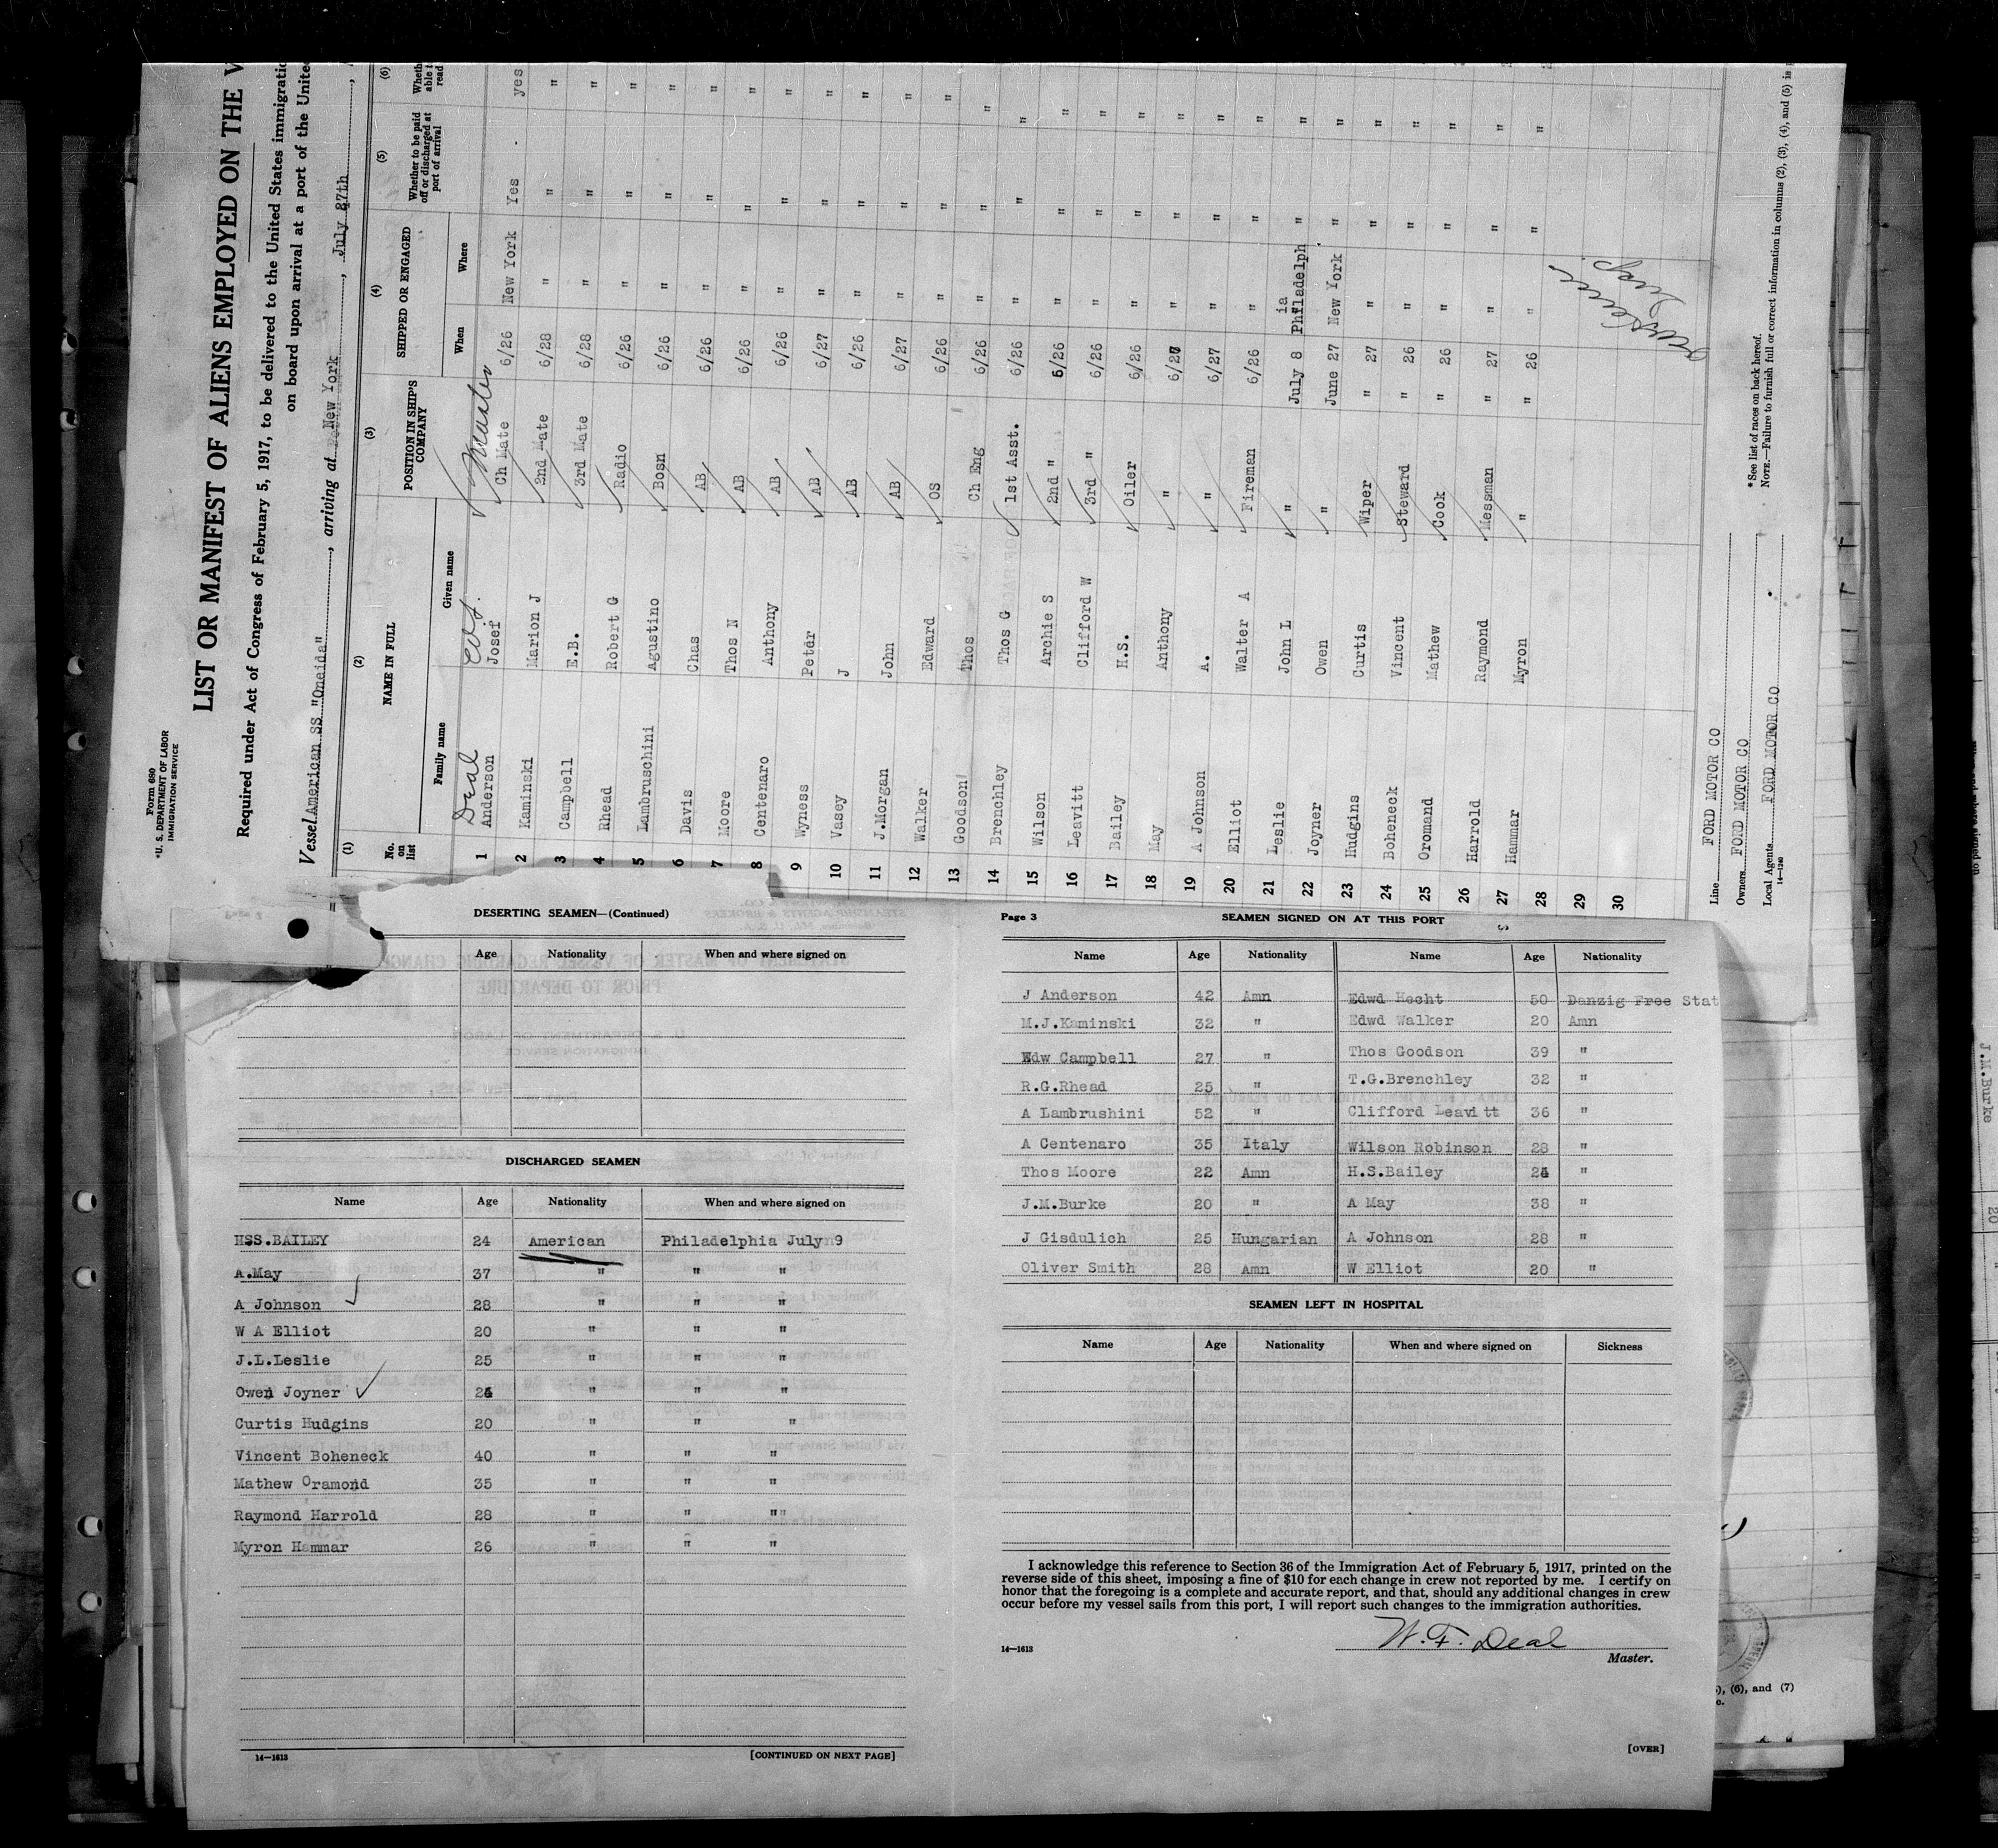 Form 680
U. S. DEPARTMENT OF LABOR
IMMIGRATION SERVICE
LIST OR MANIFEST OF ALIENS EMPLOYED ON THE V
Required under Act of Congress of February 5, 1917, to be delivered to the United States immigratio
on board upon arrival at a port of the United
Vessel American SS "Oneida", arriving at New York, July 27th,
(1) (2) (3) (4) (5) (6)
No. on list NAME IN FULL POSITION IN SHIP'S COMPANY SHIPPED OR ENGAGED Whether to be paid off or discharged at port of arrival Wheth able t read
Family name Given name When Where
Deal W.F. Master
1 Anderson Josef Ch Mate 6/26 New York Yes yes
2 Kaminski Marion J 2nd Mate 6/28 " " "
3 Campbell E.B. 3rd Mate 6/28 " " "
4 Rhead Robert G Radio 6/26 " " "
5 Lambruschini Agustino Bosn 6/26 " " "
6 Davis Chas AB 6/26 " " "
7 Moore Thos N AB 6/26 " " "
8 Centenaro Anthony AB 6/26 " " "
9 Wyness Peter AB 6/27 " " "
10 Vasey J AB 6/26 " " "
11 J.Morgan John AB 6/27 " " "
12 Walker Edward OS 6/26 " " "
13 Goodson Thos Ch Eng 6/26 " " "
14 Brenchley Thos G 1st Asst. 6/26 " " "
15 Wilson Archie S 2nd " 6/26 " " "
16 Leavitt Clifford W 3rd " 6/26 " " "
17 Bailey H.S. Oiler 6/26 " " "
18 May Anthony " 6/27 " " "
19 A Johnson A. " 6/27 " " "
20 Elliot Walter A Fireman 6/26 " " "
21 Leslie John L " July 8 Philadelphia " "
22 Joyner Owen " June 27 New York " "
23 Hudgins Curtis Wiper " 27 " " "
24 Boheneck Vincent Steward " 26 " " "
25 Oromand Mathew Cook " 26 " " "
26 Harrold Raymond Messman " 27 " " "
27 Hammar Myron " " 26 " " "
28
29
30
Line FORD MOTOR CO
Owners FORD MOTOR CO
Local Agents FORD MOTOR CO
14—1240
*See list of races on back hereof.
NOTE.—Failure to furnish full or correct information in columns (2), (3), (4), and (5) is
DESERTING SEAMEN—(Continued)
Age Nationality When and where signed on
DISCHARGED SEAMEN
Name Age Nationality When and where signed on
HSS.BAILEY 24 American Philadelphia July 9
A.May 37 " " "
A Johnson 28 " " "
W A Elliot 20 " " "
J.L.Leslie 25 " " "
Owen Joyner 24 " " "
Curtis Hudgins 20 " " "
Vincent Boheneck 40 " " "
Mathew Oramond 35 " " "
Raymond Harrold 28 " " "
Myron Hammar 26 " " "
14—1613 [CONTINUED ON NEXT PAGE]
Page 3 SEAMEN SIGNED ON AT THIS PORT
Name Age Nationality Name Age Nationality
J Anderson 42 Amn Edwd Hecht 50 Danzig Free Stat
M.J.Kaminski 32 " Edwd Walker 20 Amn
Edw Campbell 27 " Thos Goodson 39 "
R.G.Rhead 25 " T.G.Brenchley 32 "
A Lambrushini 52 " Clifford Leavitt 36 "
A Centenaro 35 Italy Wilson Robinson 28 "
Thos Moore 22 Amn H.S.Bailey 24 "
J.M.Burke 20 " A May 38 "
J Gisdulich 25 Hungarian A Johnson 28 "
Oliver Smith 28 Amn W Elliot 20 "
SEAMEN LEFT IN HOSPITAL
Name Age Nationality When and where signed on Sickness
I acknowledge this reference to Section 36 of the Immigration Act of February 5, 1917, printed on the
reverse side of this sheet, imposing a fine of $10 for each change in crew not reported by me. I certify on
honor that the foregoing is a complete and accurate report, and that, should any additional changes in crew
occur before my vessel sails from this port, I will report such changes to the immigration authorities.
W. F. Deal
14—1613 Master.
[OVER]
), (6), and (7)
J.M.Burke
20